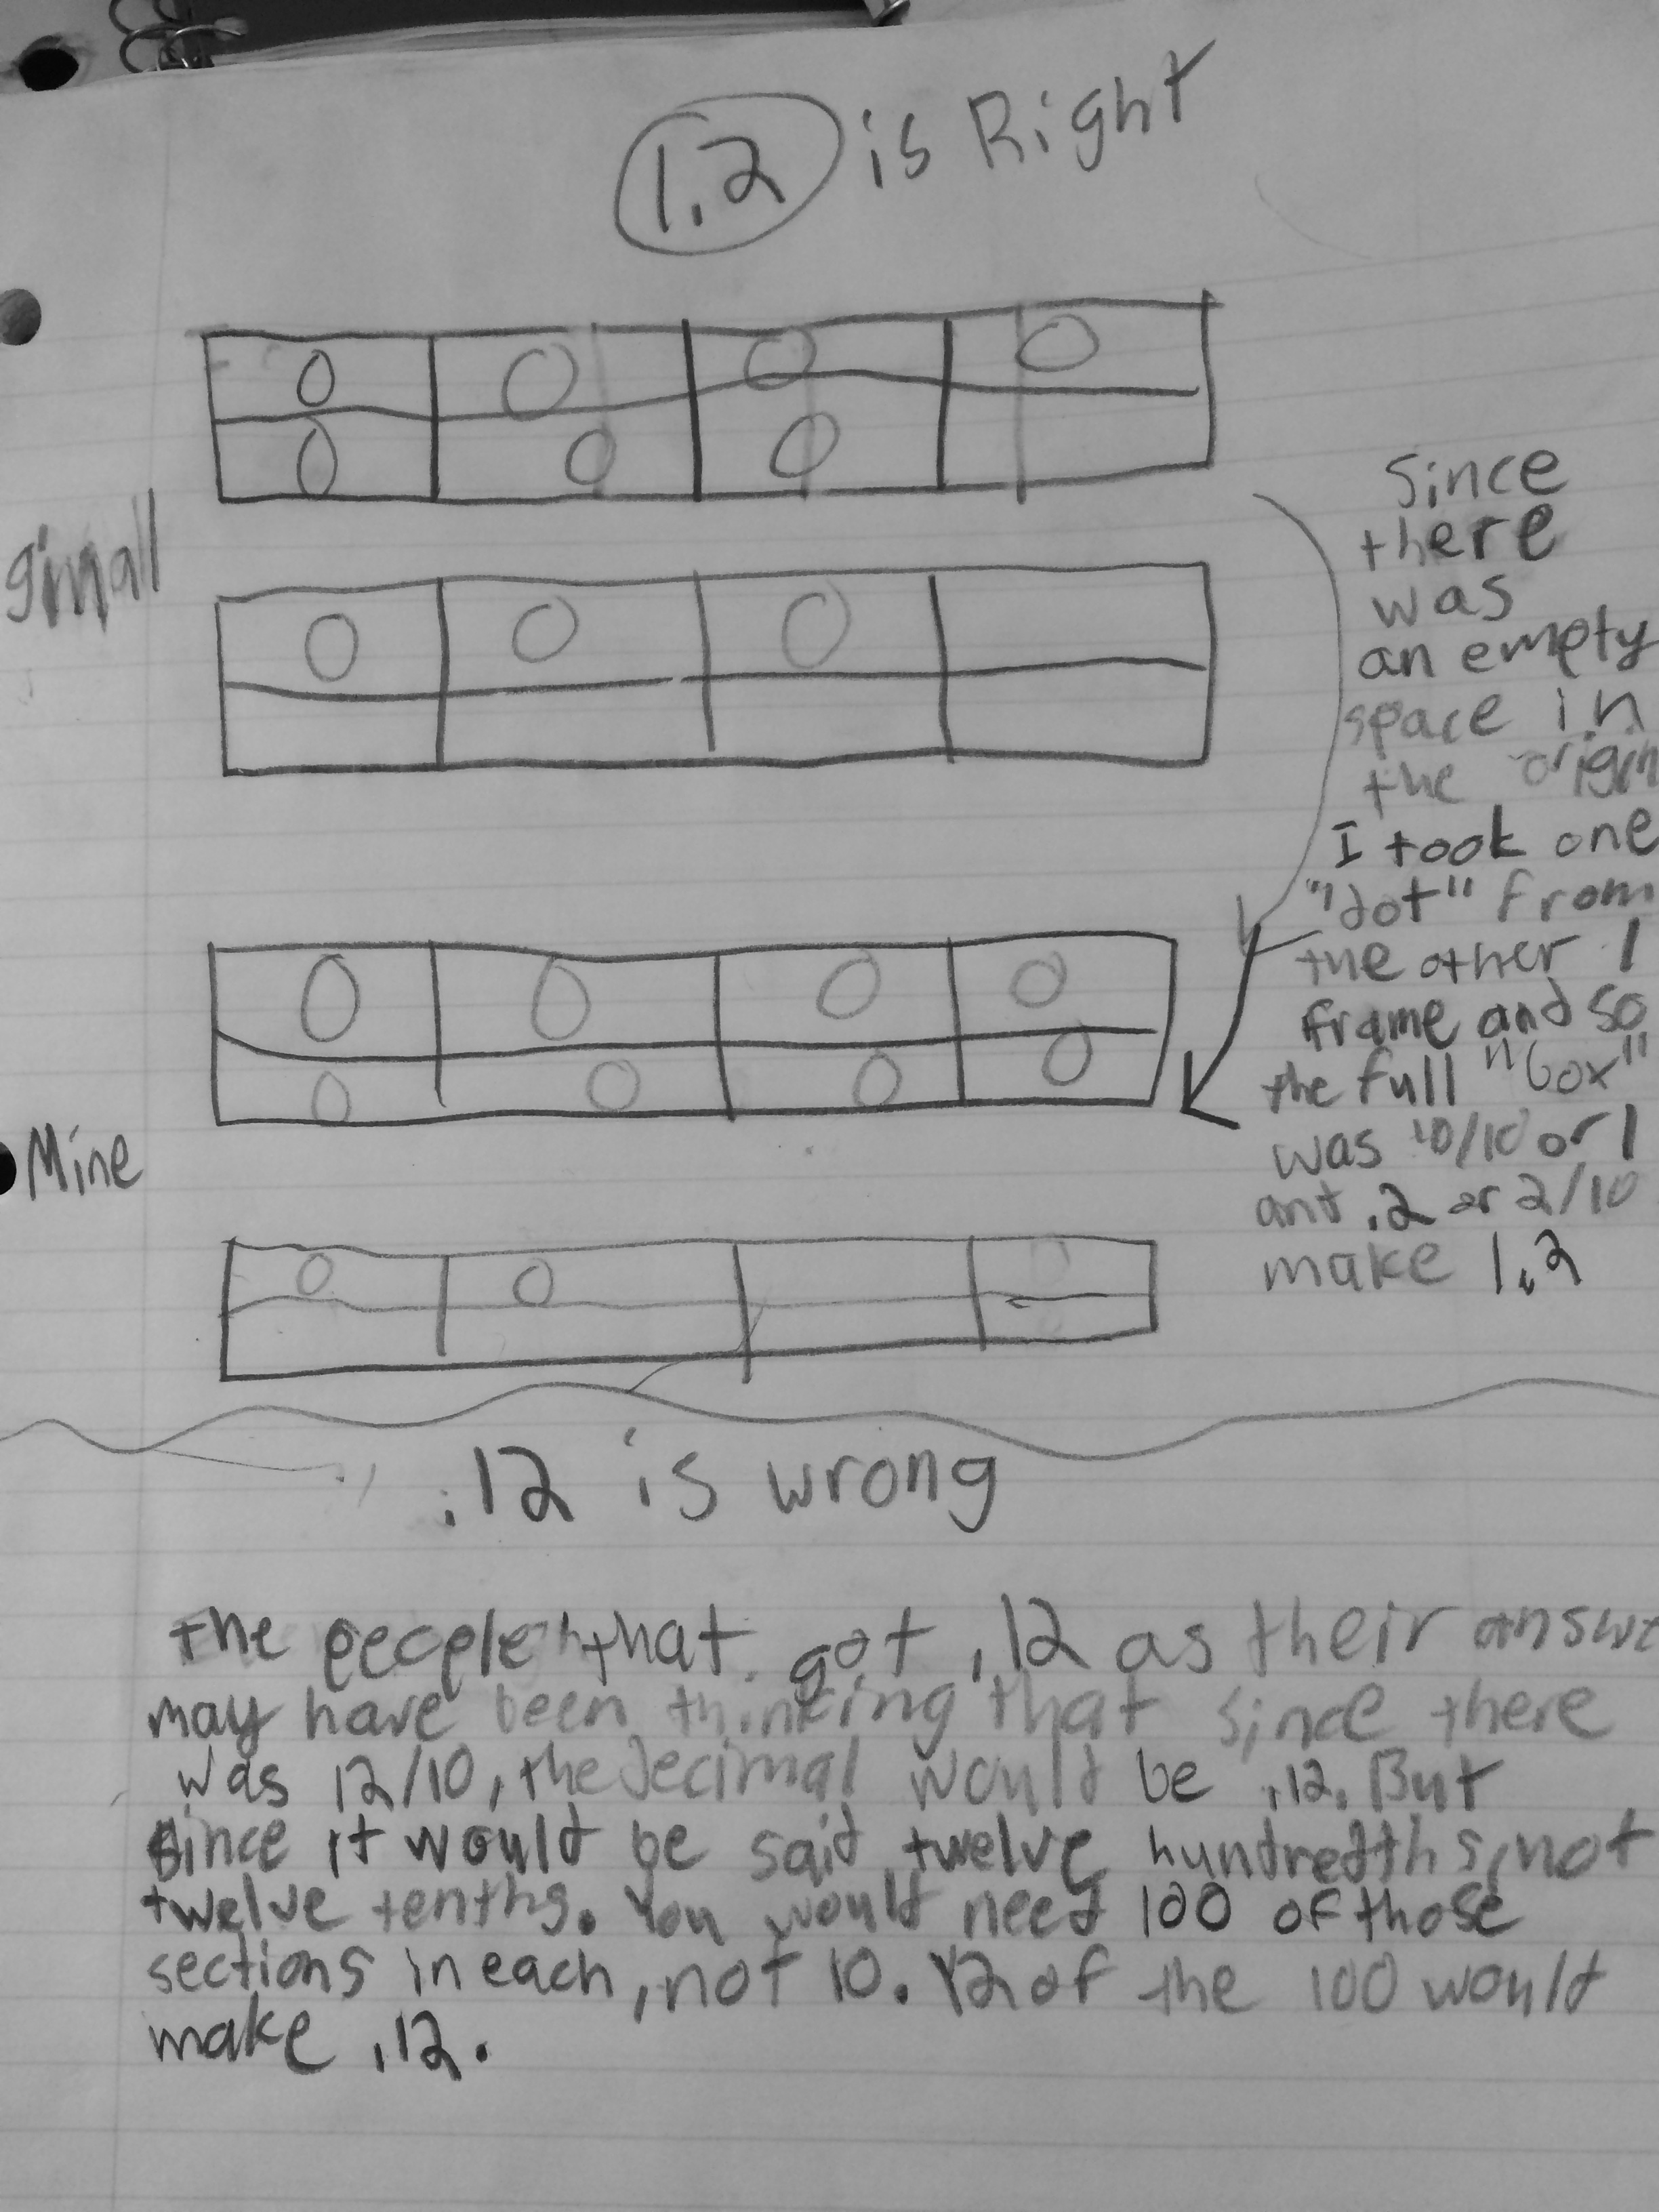 1.2 is Right
Since
there
was
an empty
space in
the origin
I took one
"dot" from
the other 1
frame and so
the full "box"
was 10/10 or 1
and .2 or 2/10
make 1.2
Mine
.12 is wrong
The people that got .12 as their answe
may have been thinking that since there
was 12/10, the decimal would be .12. But
since it would be said twelve hundredths, not
twelve tenths. You would need 100 of those
sections in each, not 10. 12 of the 100 would
make .12.